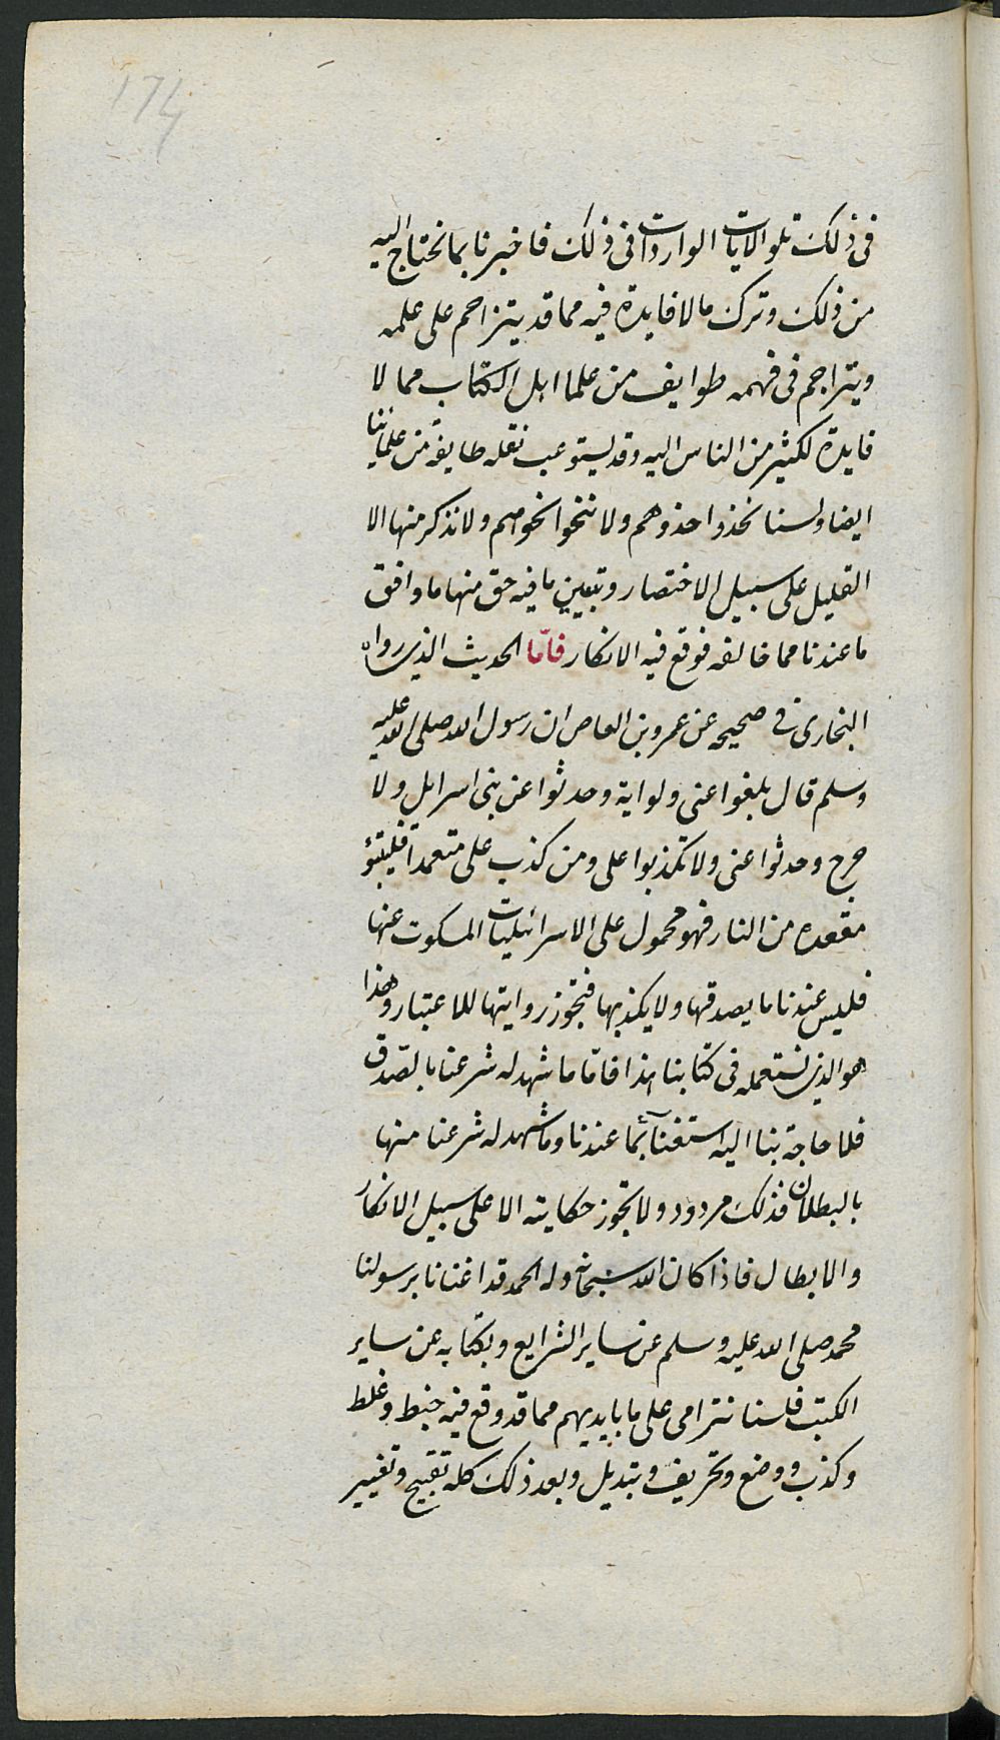 174
فى ذلك تلو الايات الواردات فى ذلك فاخبرنا بما نحتاج اليه
من ذلك وترك مالا فايدة فيه مما قد يتزاحم على علمه
ويتراجم فى فهمه طوايف من علما اهل الكتاب مما لا
فايدة لكثير من الناس اليه وقد يستوعب نقله طايفة من علمائنا
ايضا ولسنا نحذوا حذوهم ولا ننحوا نحوهم ولا نذكر منها الا
القليل على سبيل الاختصار وتبيين ما فيه حق منها ما وافق
ما عندنا مما خالفه فوقع فيه الانكار فامّا الحديث الذى رواه
البخارى فى صحيحه عن عمرو بن العاص ان رسول الله صلى الله عليه
وسلم قال بلغوا عنى ولو اية وحدثوا عن بنى اسرايل ولا
حرج وحدثوا عنى ولا تكذبوا على ومن كذب على متعمدا فليتبؤ
مقعده من النار فهو محمول على الاسرائيليات المسكوت عنها
فليس عندنا ما يصدقها ولا يكذبها فتجوز روايتها للاعتبار وهذا
هو الذى نستعمله فى كتابنا هذا فامّا ما شهد له شرعنا بالصّدق
فلا حاجة بنا اليه استغنآئًبما عندنا وما شهد له شرعنا منها
بالبطلان فذلك مردود ولا تجوز حكايته الا على سبيل الانكار
والابطال فاذا كان الله سبحانه وله الحمد قد اغنانا برسولنا
محمد صلى الله عليه وسلم عن ساير الشرايع وبكتابه عن ساير
الكتب فلسنا نترامى على ما بايديهم مما قد وقع فيه خبط وغلط
وكذب ووضع وتحريف وتبديل وبعد ذلك كله تقبيح وتغيير